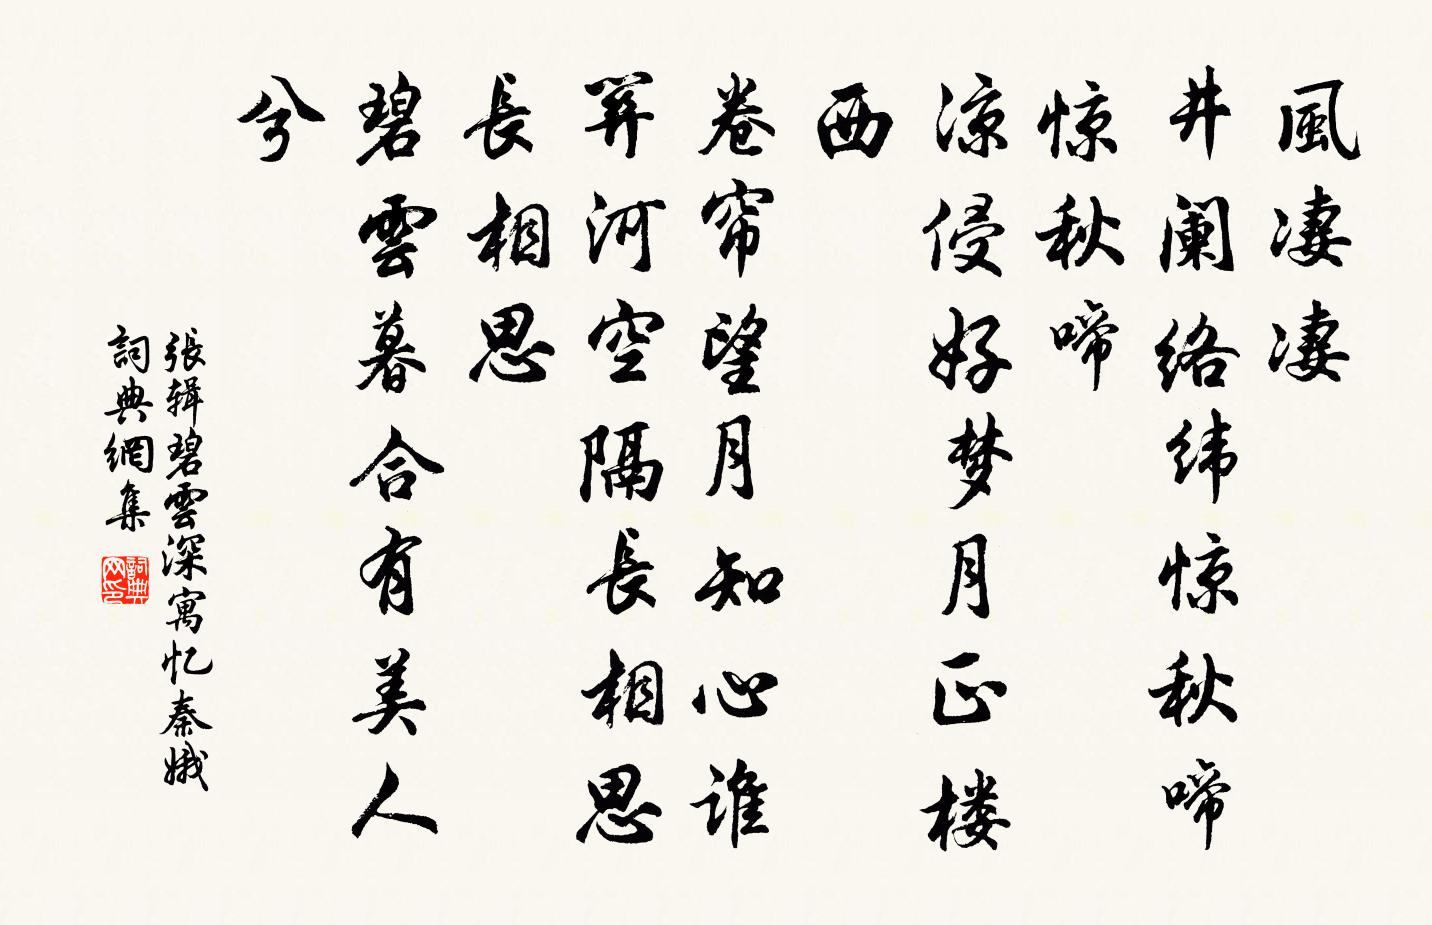 風凄凄
井阑络纬惊秋啼
惊秋啼
涼侵好梦月正楼
西
卷帘望月知心谁
関河空隔長相思
長相思
碧雲暮合有美人
兮
張辑碧雲深寓忆秦娥
詞典網集
詞典网印